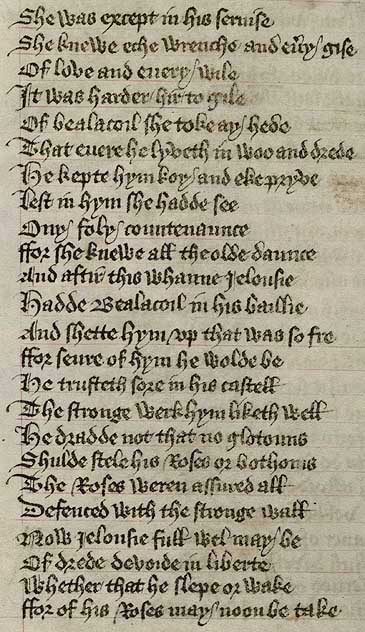 She was except in his seruise
She knewe eche wrenche and eu'y gise
Of love and euery wile
It was harder hir to gile
Of bealacoil she toke ay hede
That euere he lyveth in woo and drede
He kepte hym koy and eke pryve
lest in hym she hadde see
Ony foly countenaunce
ffor she knewe all the olde daunce
And aftir this whanne Ielousie
Hadde Bealacoil in his baillie
And shette hym vp that was so fre
ffor seure of hym he wolde be
He trusteth sore in his castell
The stronge werk hym liketh well
He dradde not that no glotouns
Shulde stele his Roses or bothoms
The Roses weren assured all
Defenced with the stronge wall
Now Ielousie full wel may be
Of drede devoide in liberte
Whether that he slepe or wake
ffor of his Roses may noon be take